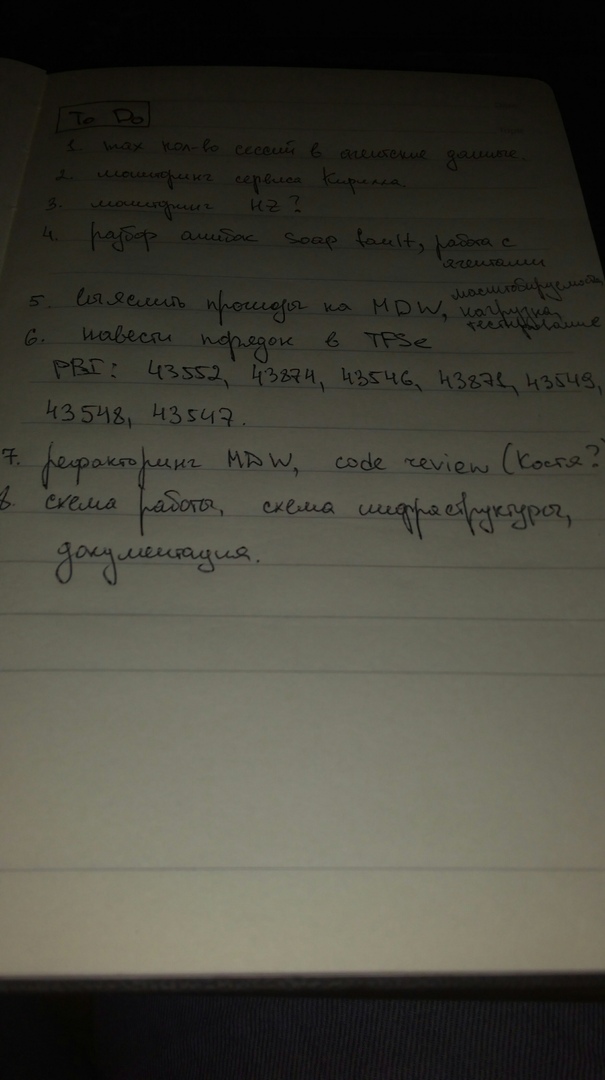 To Do
1. max кол-во сессий в агентские данные.
2. мониторинг сервиса Кирилла.
3. мониторинг HZ?
4. разбор ошибок Soap fault, работа с
агентами
5. выяснить проходы на MDW, масштабируемость
нагрузка,
тестирование
6. навести порядок в TFSe
PBI: 43552, 43874, 43546, 43871, 43549,
43548, 43547.
7. рефакторинг MDW, code review (Костя?
8. схема работы, схема инфраструктуры,
документация.